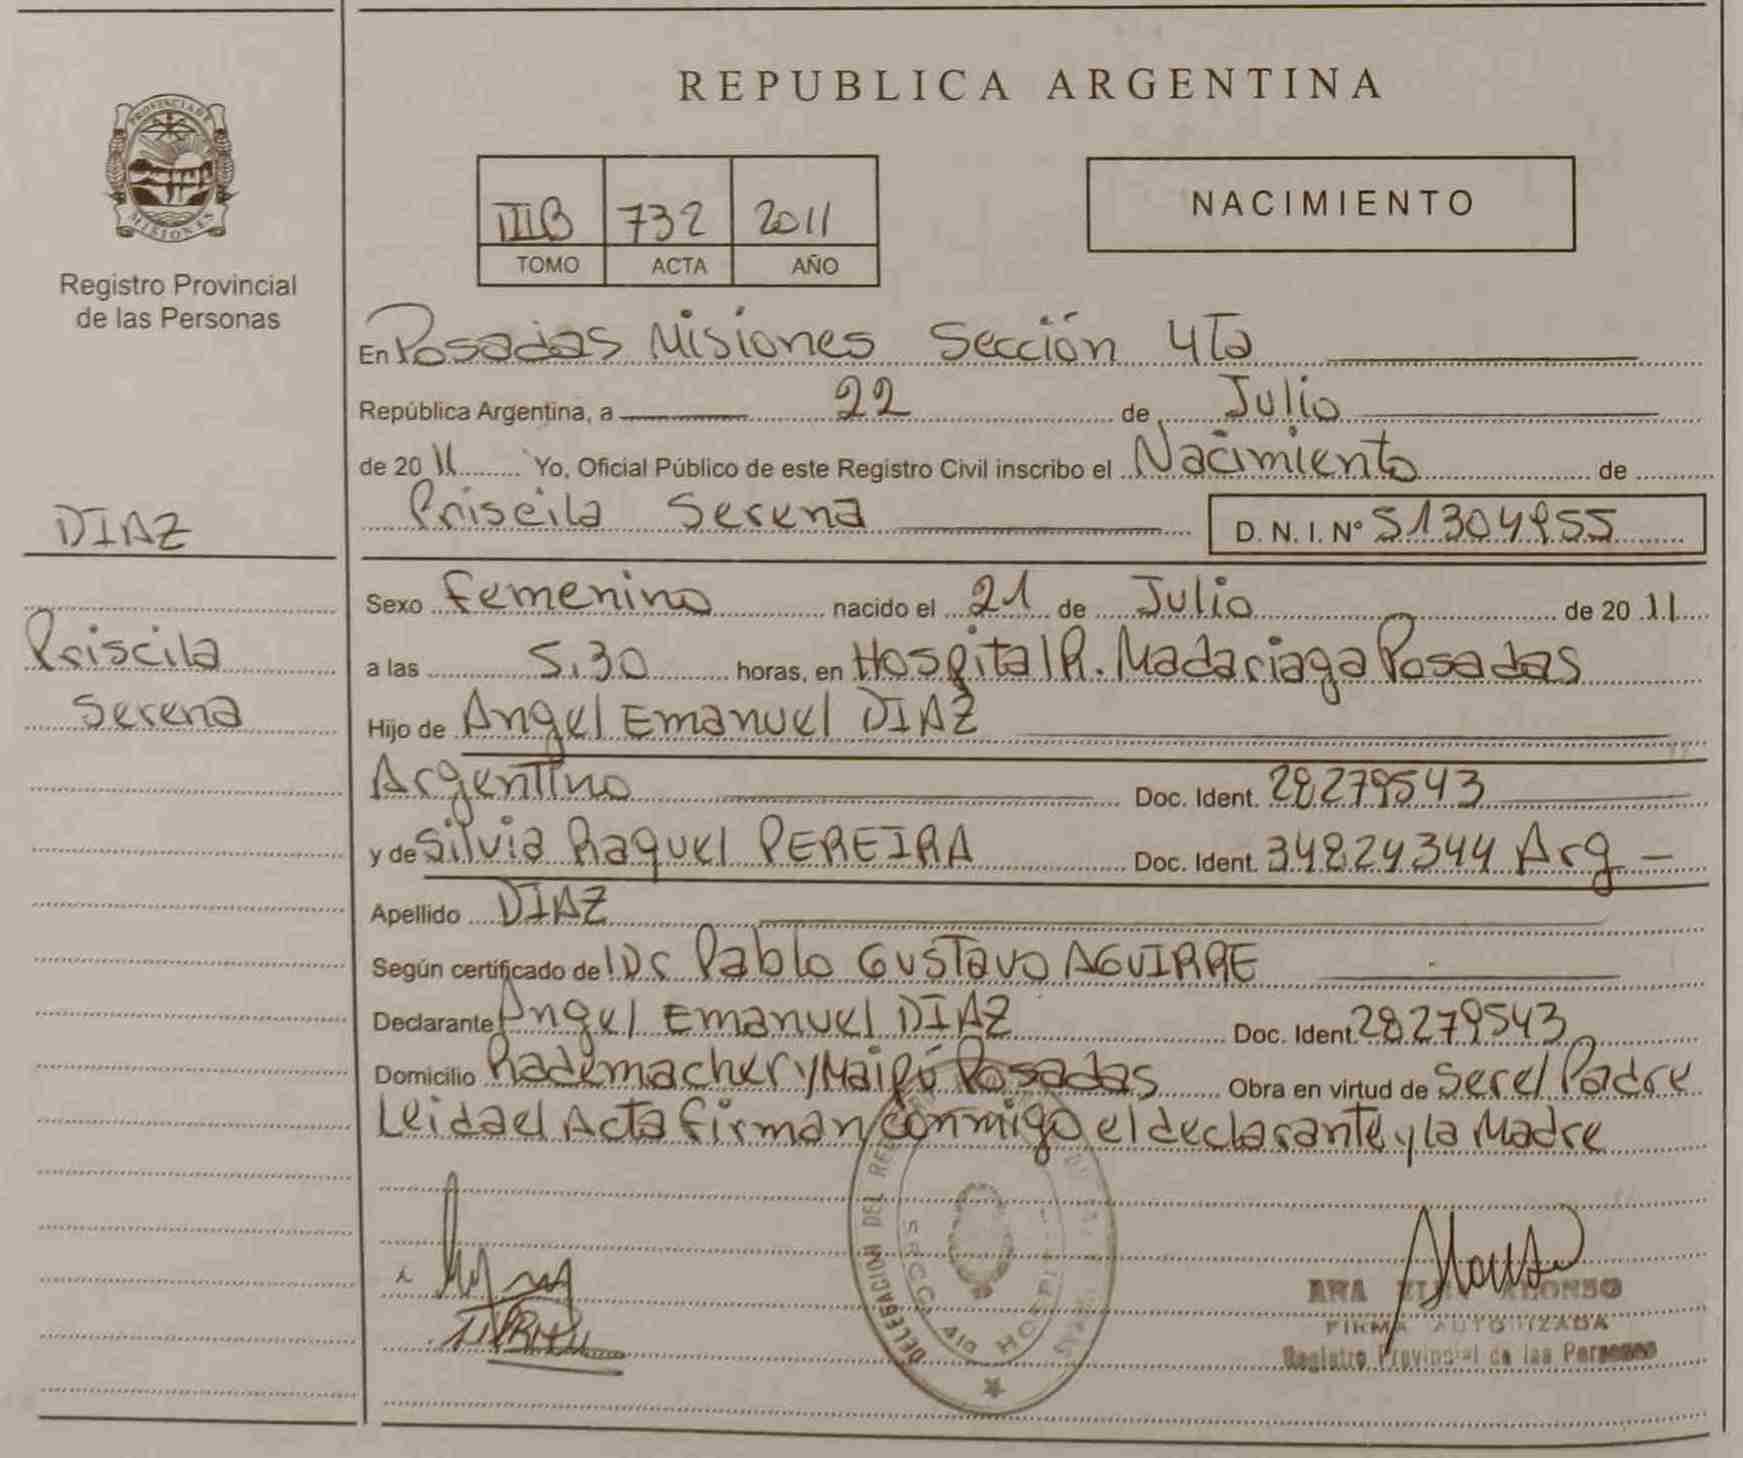 PROVINCIA DE
MISIONES
Registro Provincial
de las Personas
DIAZ
Priscila
Serena
REPUBLICA ARGENTINA
IIIB 732 2011
TOMO ACTA AÑO
NACIMIENTO
En Posadas Misiones Sección 4ta
República Argentina, a 22 de Julio
de 2011 Yo, Oficial Público de este Registro Civil inscribo el Nacimiento de
Priscila Serena D. N. I. Nº 51304955
Sexo Femenino nacido el 21 de Julio de 2011
a las 5.30 horas, en Hospital R. Madariaga Posadas
Hijo de Angel Emanuel DIAZ
Argentino Doc. Ident. 28279543
y de Silvia Raquel PEREIRA Doc. Ident. 34824344 Arg
Apellido DIAZ
Según certificado de Dr Pablo Gustavo AGUIRRE
Declarante Angel Emanuel DIAZ Doc. Ident. 28279543
Domicilio Rademacher y Maipú Posadas Obra en virtud de Ser el Padre
Leida el Acta firman conmigo el declarante y la Madre
DELEGACION DEL
SECC. 4ta HOSPI
ANA ALONSO
FIRMA AUTORIZADA
Registro Provincial de las Personas